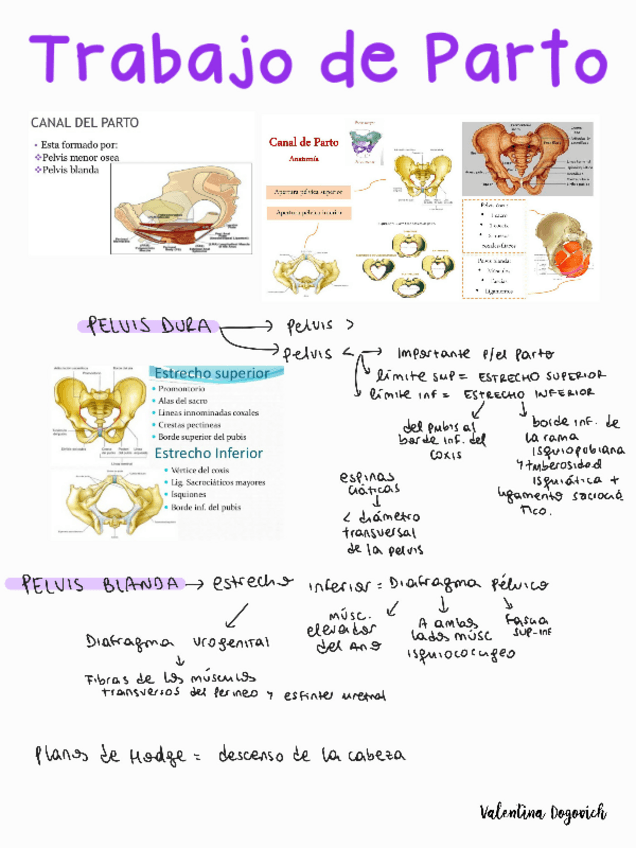 Trabajo de Parto
CANAL DEL PARTO
• Esta formado por:
❖Pelvis menor osea
❖Pelvis blanda
Canal de Parto
Anatomía
Apertura pélvica superior
Apertura pélvica inferior
PELVIS DURA → Pelvis >
→ Pelvis < → Importante p/el parto
límite sup = ESTRECHO SUPERIOR
límite inf = ESTRECHO INFERIOR
del pubis al
borde inf. del
coxis
borde inf. de
la rama
isquiopubiana
y tuberosidad
isquiática +
ligamento sacrociá
tico.
espinas
ciáticas
↓
< diámetro
transversal
de la pelvis
Estrecho superior
• Promontorio
• Alas del sacro
• Lineas innominadas coxales
• Crestas pectineas
• Borde superior del pubis
Estrecho Inferior
• Vertice del coxis
• Lig. Sacrociáticos mayores
• Isquiones
• Borde inf. del pubis
PELVIS BLANDA → estrecho inferior = Diafragma Pélvico
músc.
elevador
del Ano
A ambos
lados músc
isquiococcígeo
Fascia
sup-inf
Diafragma urogenital
↓
Fibras de los músculos
transversos del perineo y esfínter uretral
Planos de Hodge = descenso de la cabeza
Valentina Dogovich